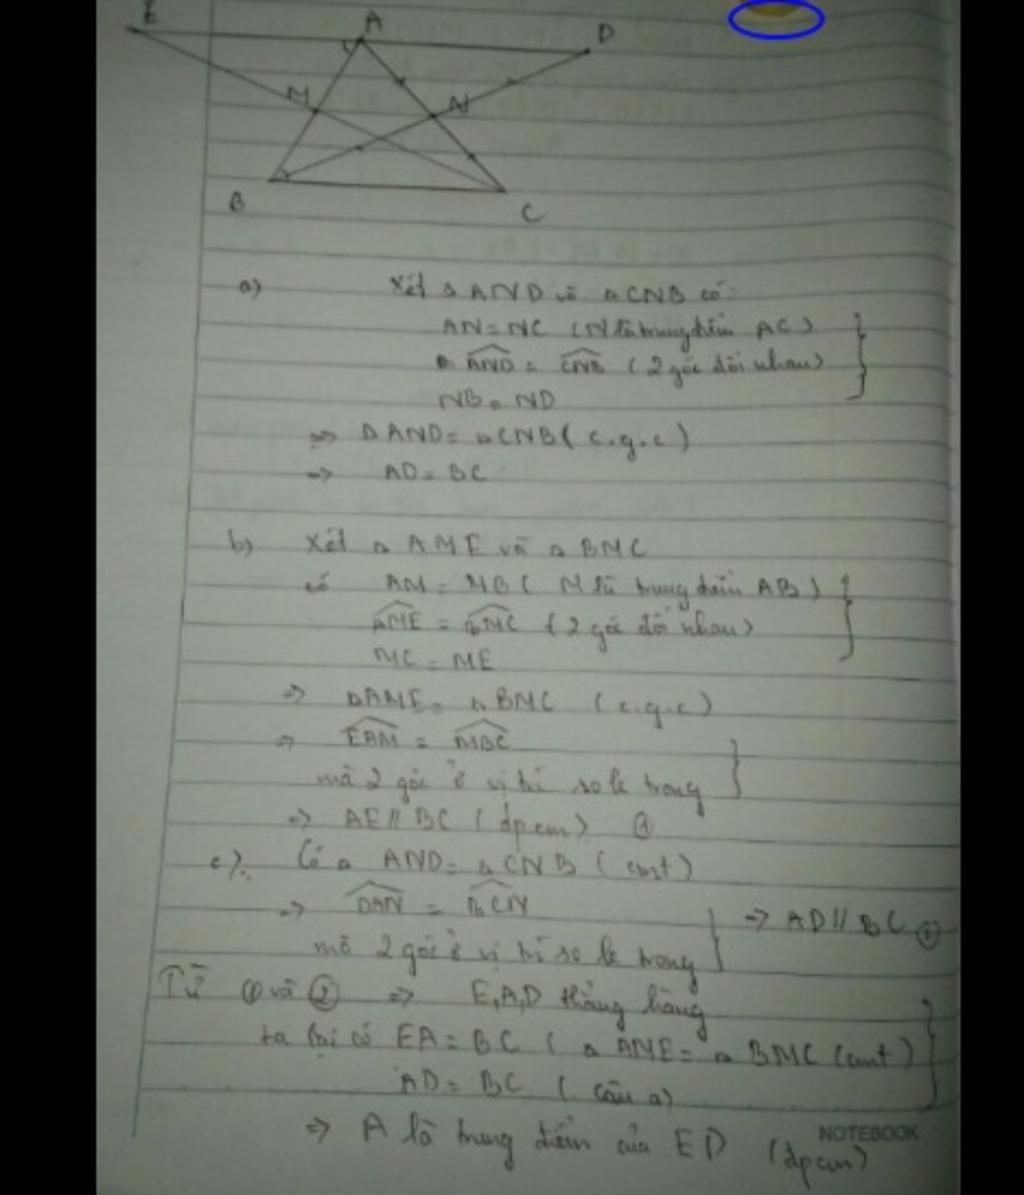 E A D
M N
B C
a) Xét ∆ AND và ∆ CNB có:
AN = NC (N là trung điểm AC)
AND = CNB (2 góc đối nhau)
NB = ND
=> ∆ AND = ∆ CNB (c.g.c)
=> AD = BC
b) Xét ∆ AME và ∆ BMC
có AM = MB ( M là trung điểm AB)
AME = BMC (2 góc đối nhau)
MC = ME
=> ∆AME = ∆ BMC (c.g.c)
=> EAM = MBC
mà 2 góc ở vị trí so le trong
=> AE // BC (đpcm) ①
c). Có ∆ AND = ∆ CNB (cmt)
=> DAN = BCN
=> AD // BC ②
mà 2 góc ở vị trí so le trong
Từ ① và ② => E, A, D thẳng hàng
ta lại có EA = BC ( ∆ AME = ∆ BMC (cmt)
AD = BC ( câu a)
=> A là trung điểm của ED (đpcm)
NOTEBOOK